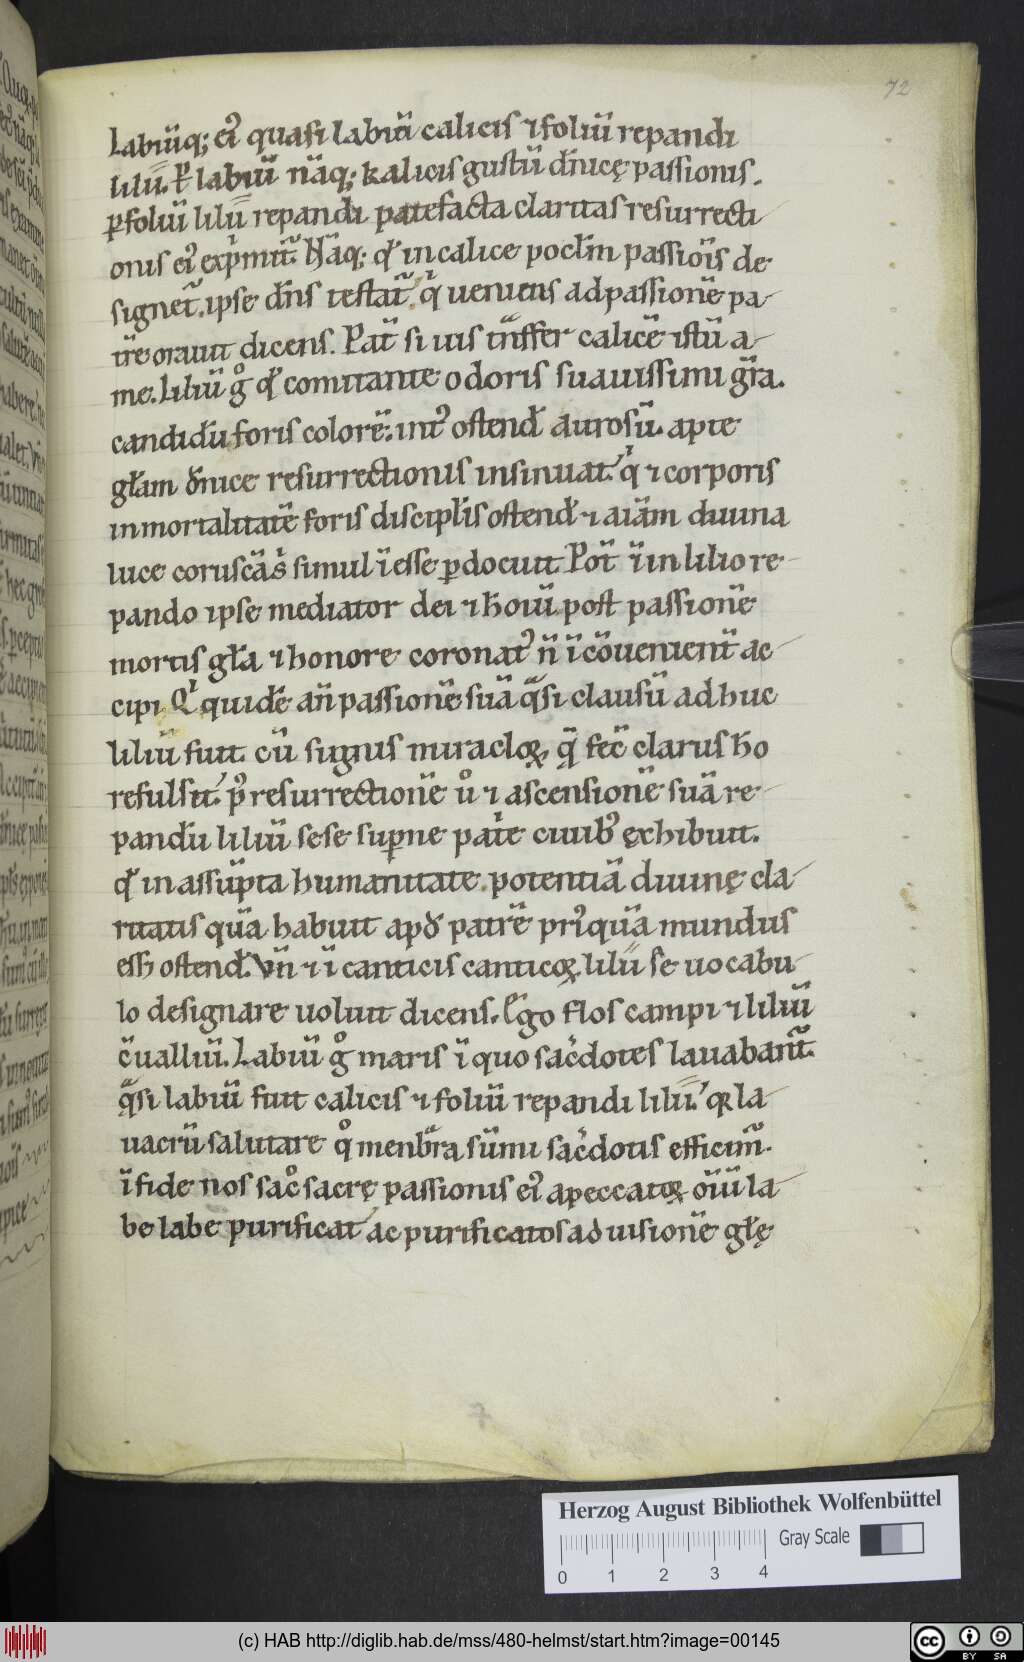 72
Labiūq; ei᷒ quasi labiū calicis ⁊ foliū repandi
lilii. P̱ labiū nāq; kalicis gustū dn̄icę passionis.
ꝑ foliū lilii repandi patefacta claritas resurrecti
onis ei᷒ exp̍mit᷑. Nāq; qđ in calice pocłm passiōis de
signet᷑. ipse dn̄s testat᷑. q̍ ueniens ad passionē pa
tre orauit dicens. Pat̄ si uis tn̄sffer calicē istū a
me. Liliū gͦ qđ comitante odoris suauissimi gr̄a.
candidū foris colorē. int᷒ ostend̄ aurosū. apte
głam dn̄ice resurrectionis insinuat. q̍ ⁊ corporis
inmortalitatē foris discipłis ostend̄ ⁊ aīam diuina
luce coruscās̍ simul īesse ꝑdocuit. Pot̄ īin lilio re
pando ipse mediator dei ⁊ hoīū post passionē
mortis gła ⁊ honore coronat᷒ n̄ īcōuenient̄ ac
cipi. Q̍ quidē an̄ passionē suā qᷓsi clausū adhuc
liliū fuit. cū signis miracloꝝ, q̄ fec̄ clarus ho
refulsit. p᷒ resurrectionē uͦ ⁊ ascensionē suā re
pandū liliū sese suꝑne pat̍e ciuib᷒ exhibuit.
qđ in assūpta humanitate. potentiā diuinę cla
ritatis quā habuit apđ patrē pri᷒quā mundus
eēt ostend̄. Vn̄ ⁊ ī canticis canticoꝝ lilii se uocabu
lo designare uoluit dicens. Ego flos campi ⁊ liliū
c̄ualliū. Labiū gͦ maris ī quo sac̍dotes lauabant᷑.
qᷓsi labiū fuit calicis ⁊ foliū repandi lilii. qꝛ la
uacrū salutare qͦ menbrᷓa sūmi sac̍dotis efficim᷒.
ī fide nos sacͦ sacrę passionis ei᷒ a peccatoꝝ oīū la
be labe purificat ac purificatos ad uisionē głę
Herzog August Bibliothek Wolfenbüttel
Gray Scale
0 1 2 3 4
(c) HAB http://diglib.hab.de/mss/480-helmst/start.htm?image=00145
cc BY SA